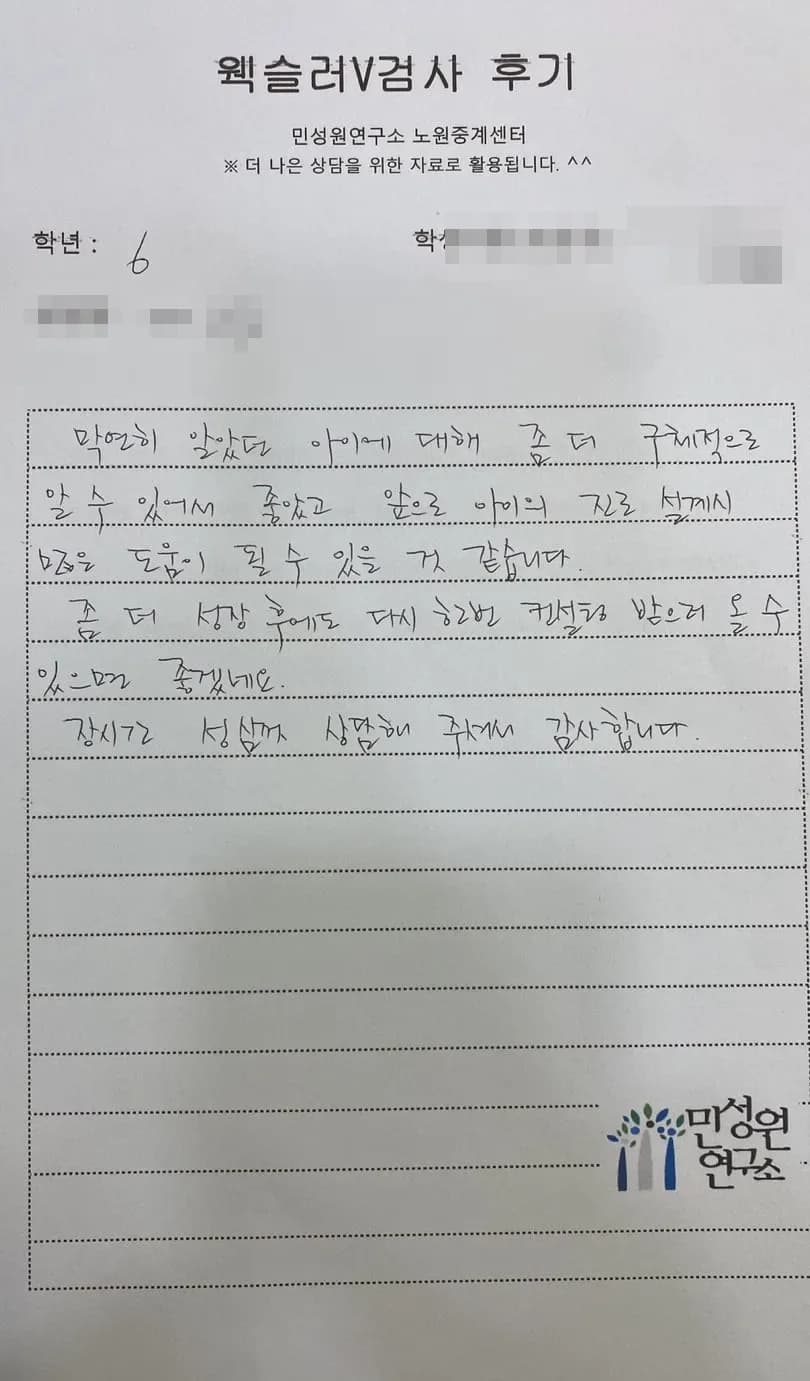 웩슬러V검사 후기
민성원연구소 노원중계센터
※ 더 나은 상담을 위한 자료로 활용됩니다. ^^
학년 : 6
학
막연히 알았던 아이에 대해 좀 더 구체적으로
알 수 있어서 좋았고 앞으로 아이의 진로 설계시
많은 도움이 될 수 있을 것 같습니다.
좀 더 성장 후에도 다시 한번 컨설팅 받으러 올 수
있으면 좋겠네요.
장시간 성심껏 상담해 주셔서 감사합니다.
민성원
연구소